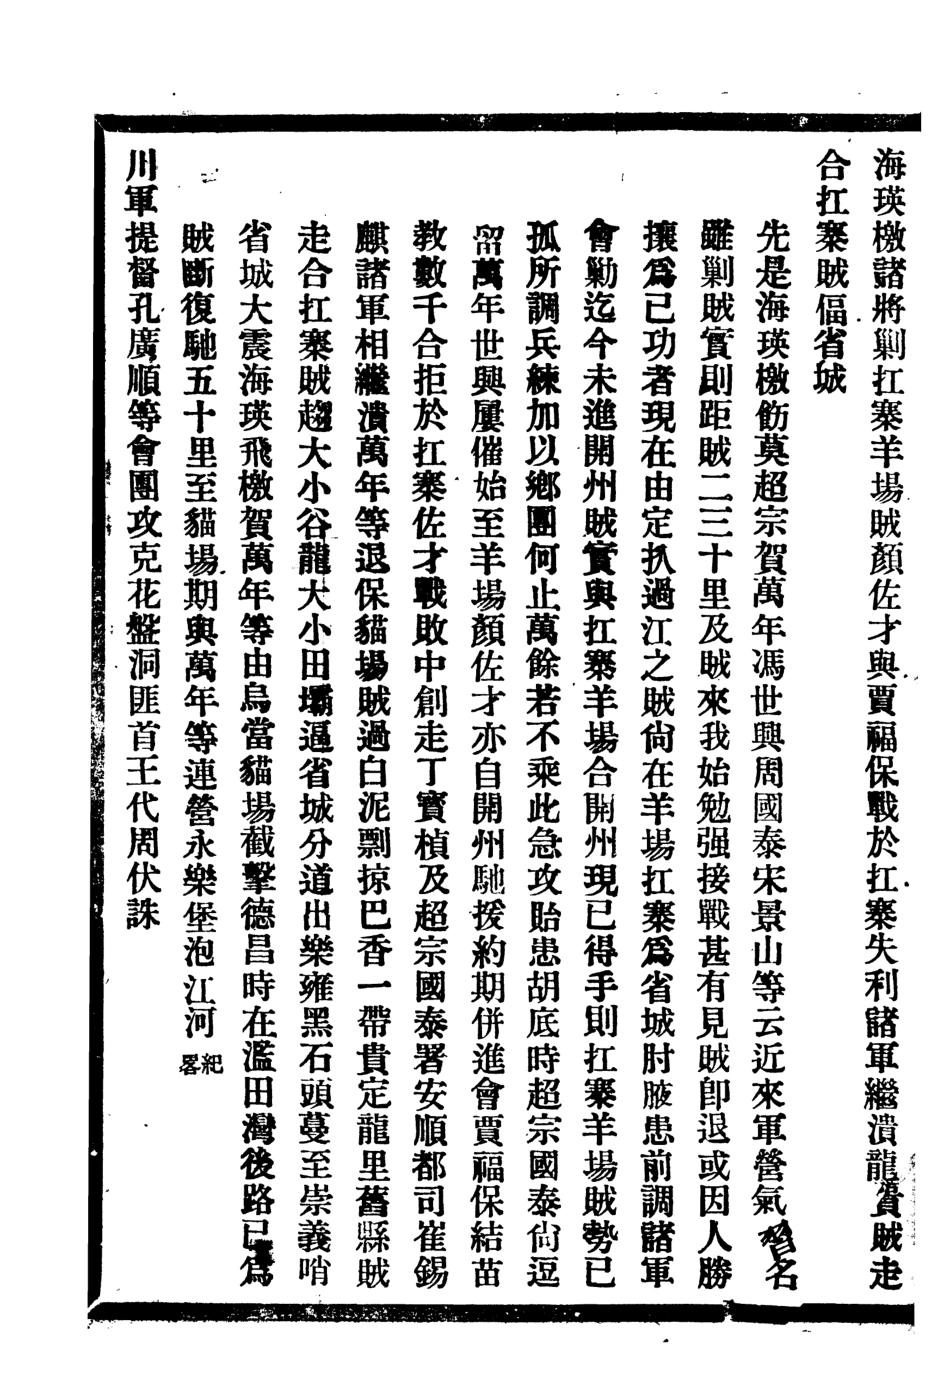 海瑛檄諸將剿扛寨羊場賊顏佐才與賈福保戰於扛寨失利諸軍繼潰龍貴賊走
合扛寨賊偪省城
先是海瑛檄飭莫超宗賀萬年馮世興周國泰宋景山等云近來軍營氣習名
雖剿賊實則距賊二三十里及賊來我始勉强接戰甚有見賊卽退或因人勝
攘爲己功者現在由定扒過江之賊尙在羊場扛寨爲省城肘腋患前調諸軍
會勦迄今未進開州賊實與扛寨羊場合開州現已得手則扛寨羊場賊勢已
孤所調兵練加以鄕團何止萬餘若不乘此急攻貽患胡底時超宗國泰尙逗
留萬年世興屢催始至羊場顏佐才亦自開州馳援約期併進會賈福保結苗
教數千合拒於扛寨佐才戰敗中創走丁寶楨及超宗國泰署安順都司崔錫
麒諸軍相繼潰萬年等退保貓場賊過白泥剽掠巴香一帶貴定龍里舊縣賊
走合扛寨賊趨大小谷龍大小田壩逼省城分道出樂雍黑石頭蔓至崇義哨
省城大震海瑛飛檄賀萬年等由烏當貓場截擊德昌時在濫田灣後路已爲
賊斷復馳五十里至貓場期與萬年等連營永樂堡泡江河紀畧
川軍提督孔廣順等會團攻克花盤洞匪首王代周伏誅